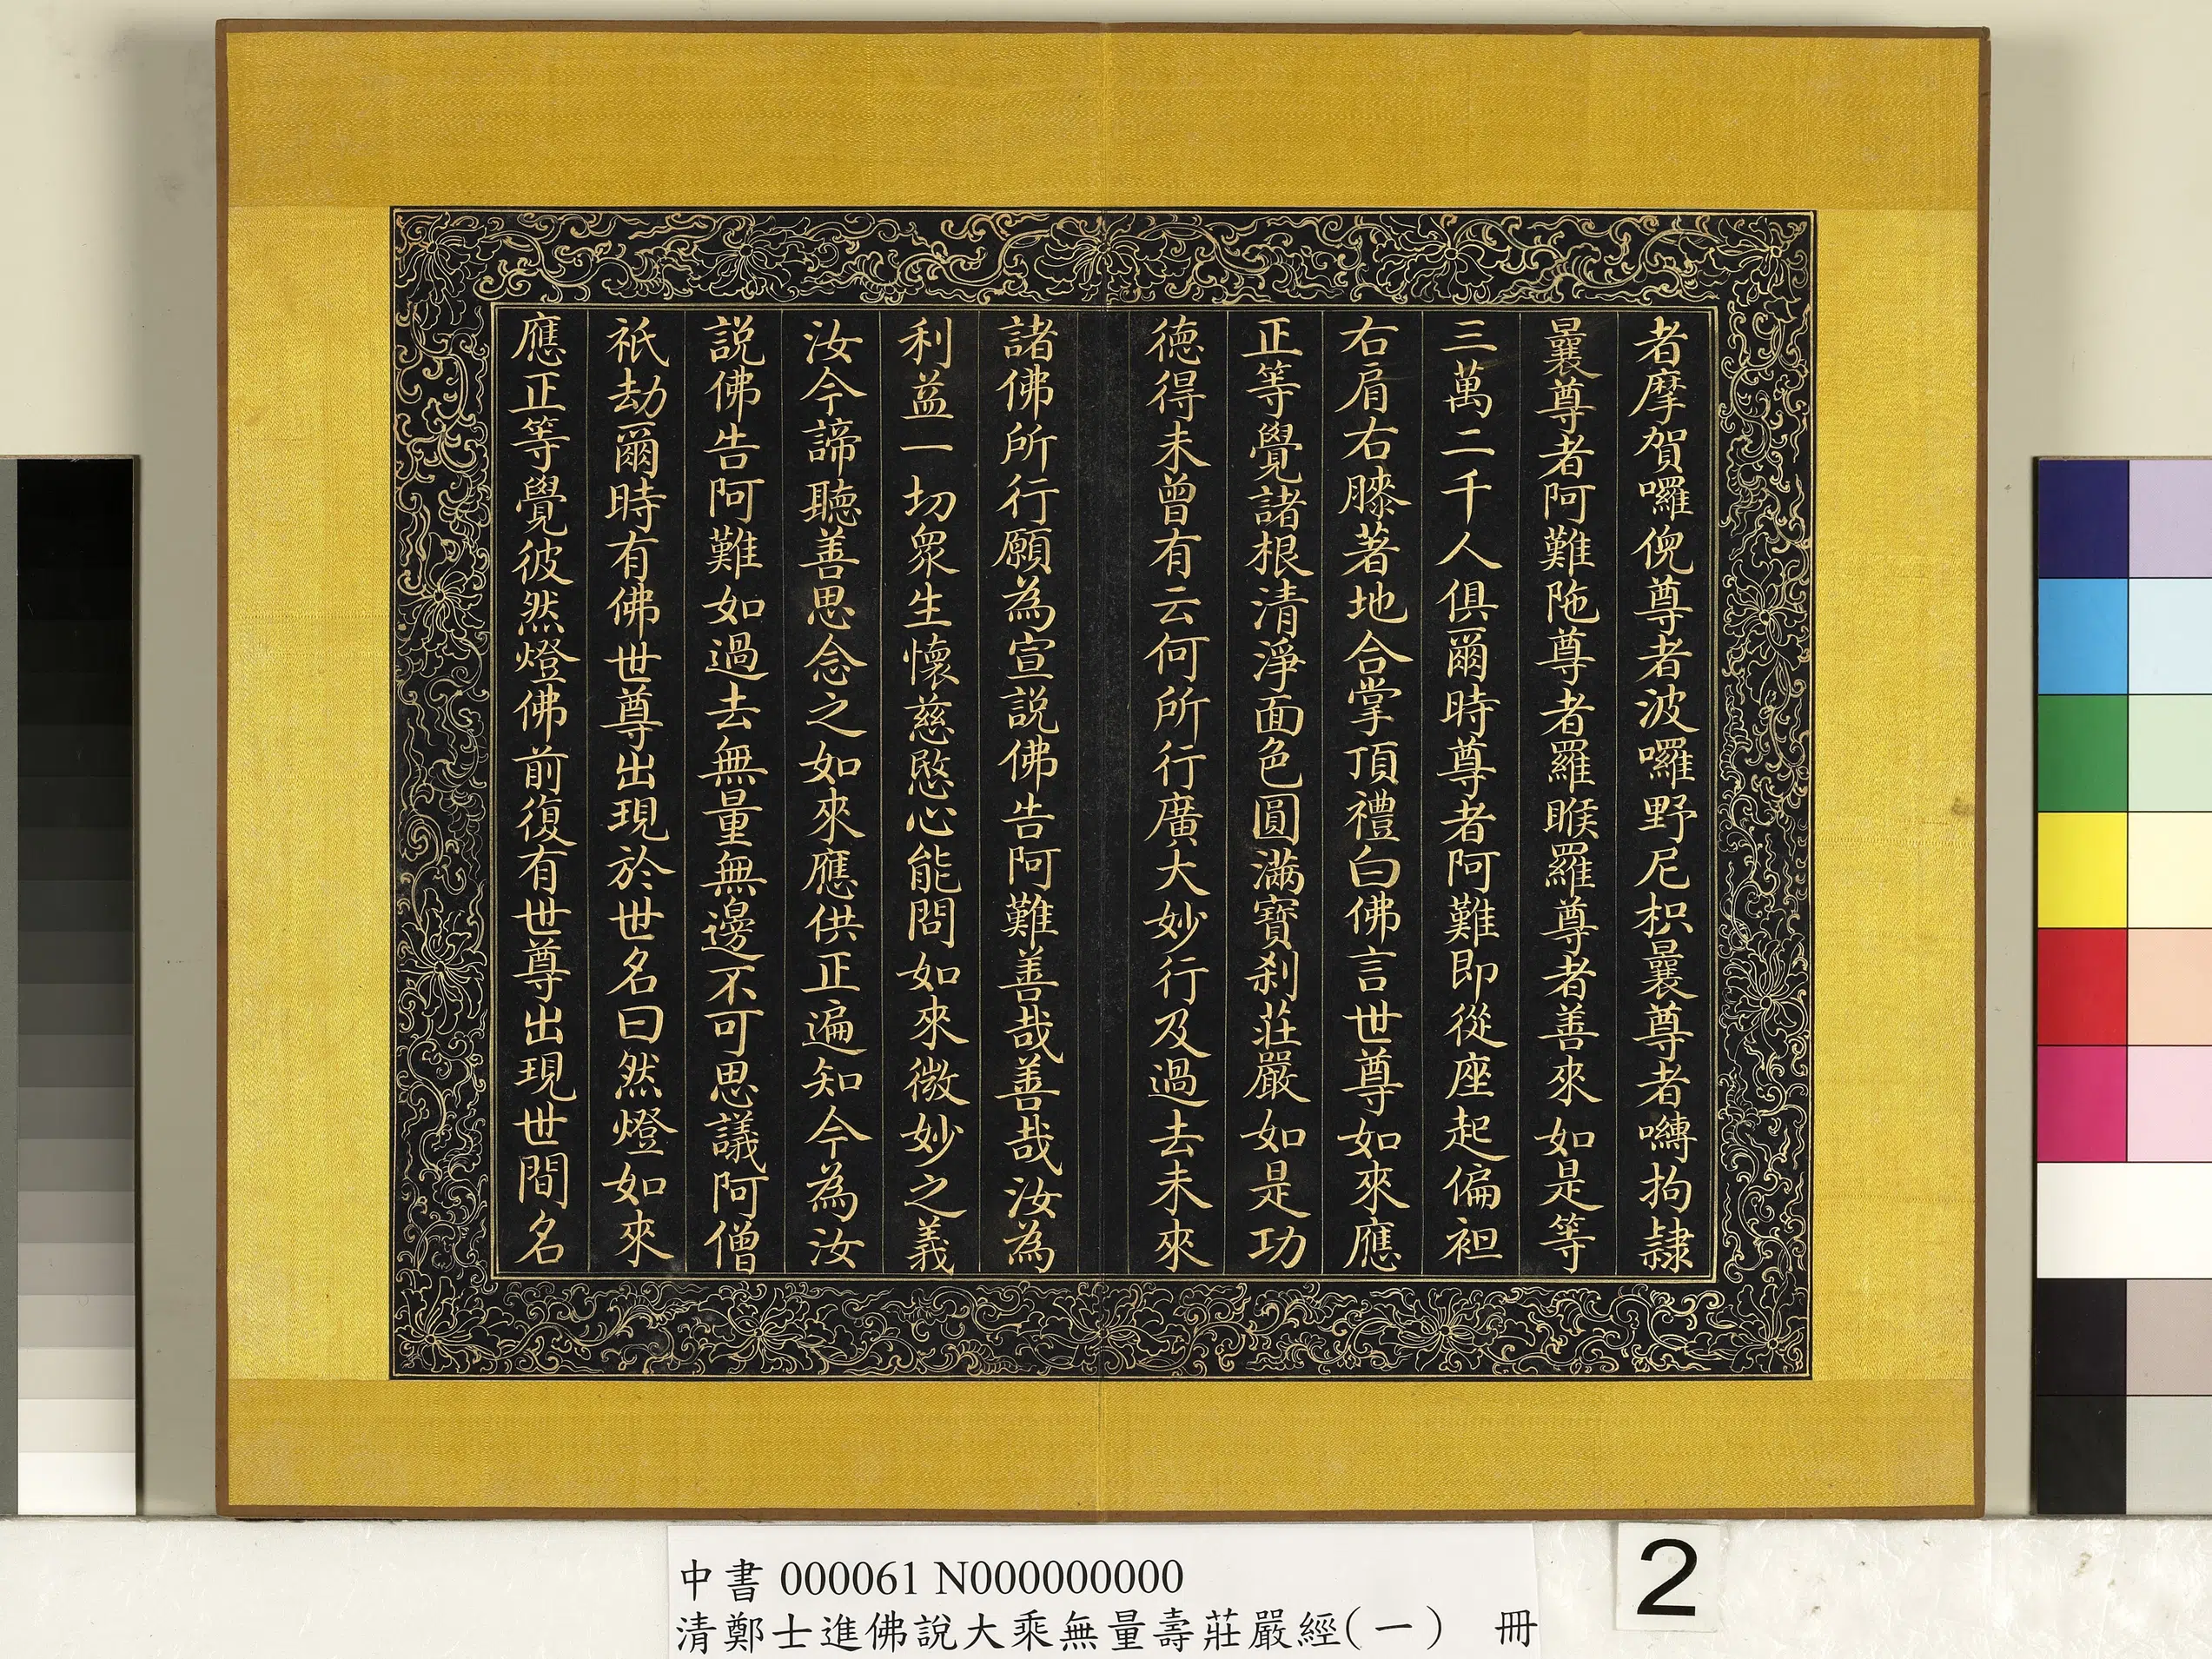 者摩賀囉倪尊者波囉野尼枳曩尊者嚩拘隸
曩尊者阿難陁尊者羅睺羅尊者善來如是等
三萬二千人俱爾時尊者阿難即從座起偏袒
右肩右膝著地合掌頂禮白佛言世尊如來應
正等覺諸根清淨面色圓滿寶刹莊嚴如是功
德得未曾有云何所行廣大妙行及過去未來
諸佛所行願為宣説佛告阿難善哉善哉汝為
利益一切眾生懷慈愍心能問如來微妙之義
汝今諦聽善思念之如來應供正遍知今為汝
説佛告阿難如過去無量無邊不可思議阿僧
祇劫爾時有佛世尊出現於世名曰然燈如來
應正等覺彼然燈佛前復有世尊出現世間名
中書 000061 N000000000
清鄭士進佛說大乘無量壽莊嚴經(一) 冊
2